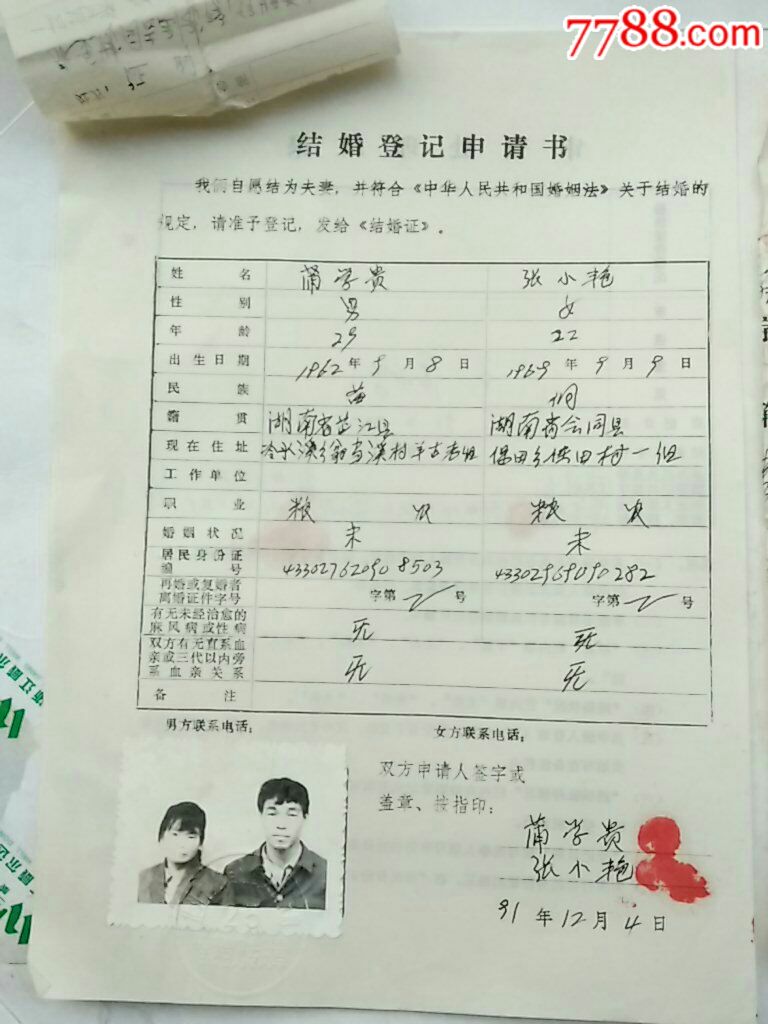 7788.com
结婚登记申请书
我们自愿结为夫妻，并符合《中华人民共和国婚姻法》关于结婚的
规定，请准予登记，发给《结婚证》。
姓名 蒲学贵 张小艳
性别 男 女
年龄 29 22
出生日期 1962年9月8日 1969年9月9日
民族 苗 侗
籍贯 湖南省芷江县 湖南省会同县
现在住址 冷水溪乡 溪村羊古老组 堡田乡堡田村一组
工作单位
职业 粮农 粮农
婚姻状况 未 未
居民身份证
编号 433027620908503 43302969090282
再婚或复婚者
离婚证件字号 字第 号 字第 号
有无未经治愈的
麻风病或性病 无 无
双方有无直系血
亲或三代以内旁
系血亲关系 无 无
备注
男方联系电话： 女方联系电话：
双方申请人签字或
盖章、按指印：
蒲学贵
张小艳
91年12月4日